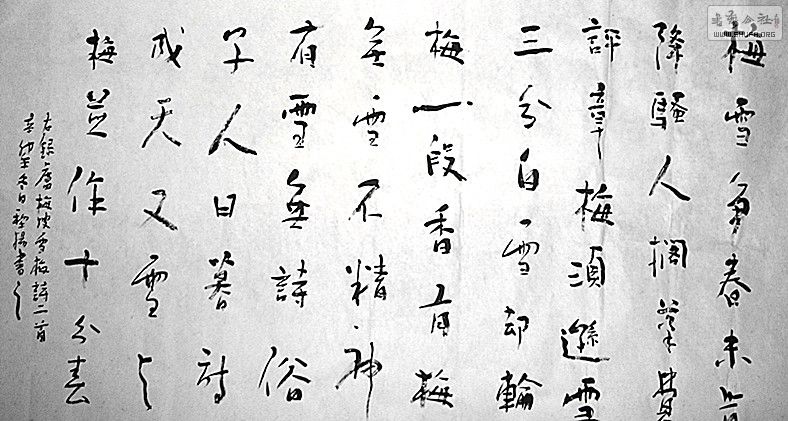 梅雪争春未肯
降騷人擱筆費
評章梅須遜雪
三分白雪却輸
梅一段香有梅
無雪不精神
有雪無詩俗
了人日暮詩
成天又雪与
梅並作十分春
右錄盧梅坡雪梅詩二首
冬日 書之
書法公社
WWW.SHUFA.ORG